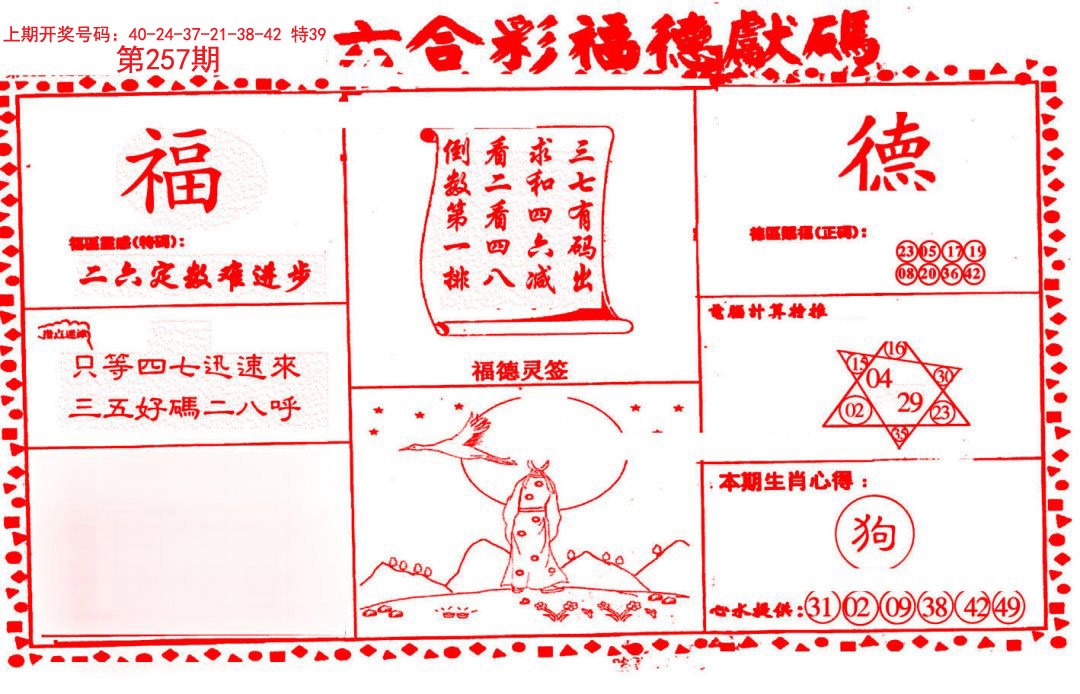 上期开奖号码：40-24-37-21-38-42 特39
第257期
六合彩福德獻碼
福
福區靈感(特碼)：
二六定数难进步
只等四七迅速來
三五好碼二八呼
三七有码出
求和四六减
看二看四八
倒数第一排
福德灵签
德
德區賜福(正碼)：
23 05 17 19
08 20 36 42
電腦計算特推
16
15 04 30
02 29 23
35
本期生肖心得：
狗
心水提供：31 02 09 38 42 49